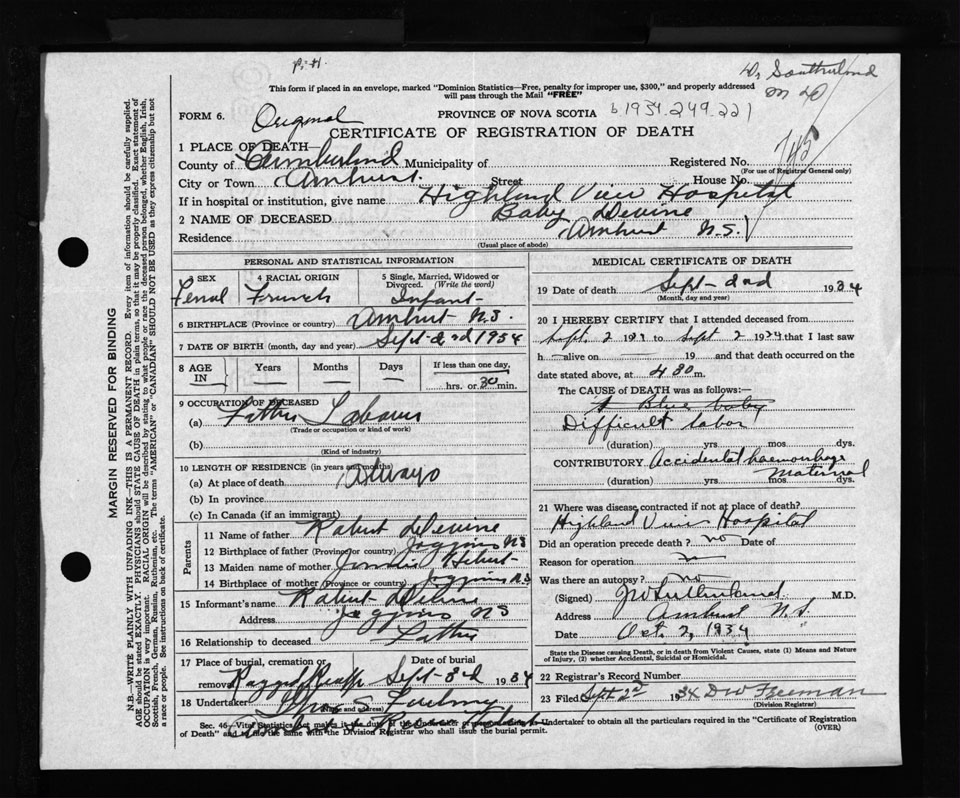 This form if placed in an envelope, marked "Dominion Statistics—Free, penalty for improper use, $300," and properly addressed
will pass through the Mail "FREE"
Dr Southerland
FORM 6.
Original
PROVINCE OF NOVA SCOTIA
b 1934-249-221
CERTIFICATE OF REGISTRATION OF DEATH
745
1 PLACE OF DEATH—
County of Cumberland Municipality of
Registered No.
(For use of Registrar General only)
City or Town Amherst. Street House No.
If in hospital or institution, give name Highland View Hospital
2 NAME OF DECEASED Baby DeVine
Residence Amherst N.S.
(Usual place of abode)
PERSONAL AND STATISTICAL INFORMATION
3 SEX 4 RACIAL ORIGIN 5 Single, Married, Widowed or Divorced. (Write the word)
Femal French Infant
6 BIRTHPLACE (Province or country) Amherst N.S.
7 DATE OF BIRTH (month, day and year) Sept 2nd 1934
8 AGE IN Years Months Days If less than one day,
hrs. or 30 min.
9 OCCUPATION OF DECEASED
(a) Father Laborer
(Trade or occupation or kind of work)
(b)
(Kind of industry)
10 LENGTH OF RESIDENCE (in years and months)
(a) At place of death Always
(b) In province
(c) In Canada (if an immigrant)
Parents
11 Name of father Robert DeVine
12 Birthplace of father (Province or country) Joggins NS
13 Maiden name of mother Hebert
14 Birthplace of mother (Province or country) Joggins N.S
15 Informant's name Robert DeVine
Address Joggins NS
16 Relationship to deceased Father
17 Place of burial, cremation or removal Date of burial
Ragged Reef Sept 3rd 1934
18 Undertaker
(Name and address)
MEDICAL CERTIFICATE OF DEATH
19 Date of death Sept 2nd 1934
(Month, day and year)
20 I HEREBY CERTIFY that I attended deceased from
Sept. 2 19 to Sept 2 1934 that I last saw
h alive on 19 and that death occurred on the
date stated above, at 4 30 m.
The CAUSE OF DEATH was as follows:—
Blue baby
Difficult labor
(duration) yrs. mos. dys.
CONTRIBUTORY Accidental haemorrhage
maternal
(duration) yrs. mos. dys.
21 Where was disease contracted if not at place of death?
Highland View Hospital
Did an operation precede death? no Date of
Reason for operation
Was there an autopsy? no
(Signed) JW Sutherland M.D.
Address Amherst N.S.
Date Oct. 2, 1934
State the Disease causing Death, or in death from Violent Causes, state (1) Means and Nature of Injury, (2) whether Accidental, Suicidal or Homicidal.
22 Registrar's Record Number
23 Filed Sept 2nd 1934 DW Freeman
(Division Registrar)
Sec. 46—Vital Statistics Act makes it the duty of the Undertaker to obtain all the particulars required in the "Certificate of Registration
of Death" and to file the same with the Division Registrar who shall issue the burial permit.
(OVER)
MARGIN RESERVED FOR BINDING
N.B.—WRITE PLAINLY WITH UNFADING INK—THIS IS A PERMANENT RECORD. Every item of information should be carefully supplied.
AGE should be stated EXACTLY. PHYSICIANS should STATE CAUSE OF DEATH in plain terms, so that it may be properly classified. Exact statement of
OCCUPATION is very important. RACIAL ORIGIN will be described by stating to what people or race the deceased person belonged, whether English, Irish,
Scottish, French, German, Russian, Ruthenian, etc. The terms "AMERICAN" or "CANADIAN" SHOULD NOT BE USED as they express citizenship but not
a race or people. See instructions on back of certificate.